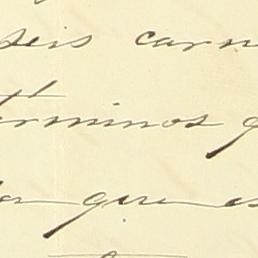 seis carn
terminos q
la que es